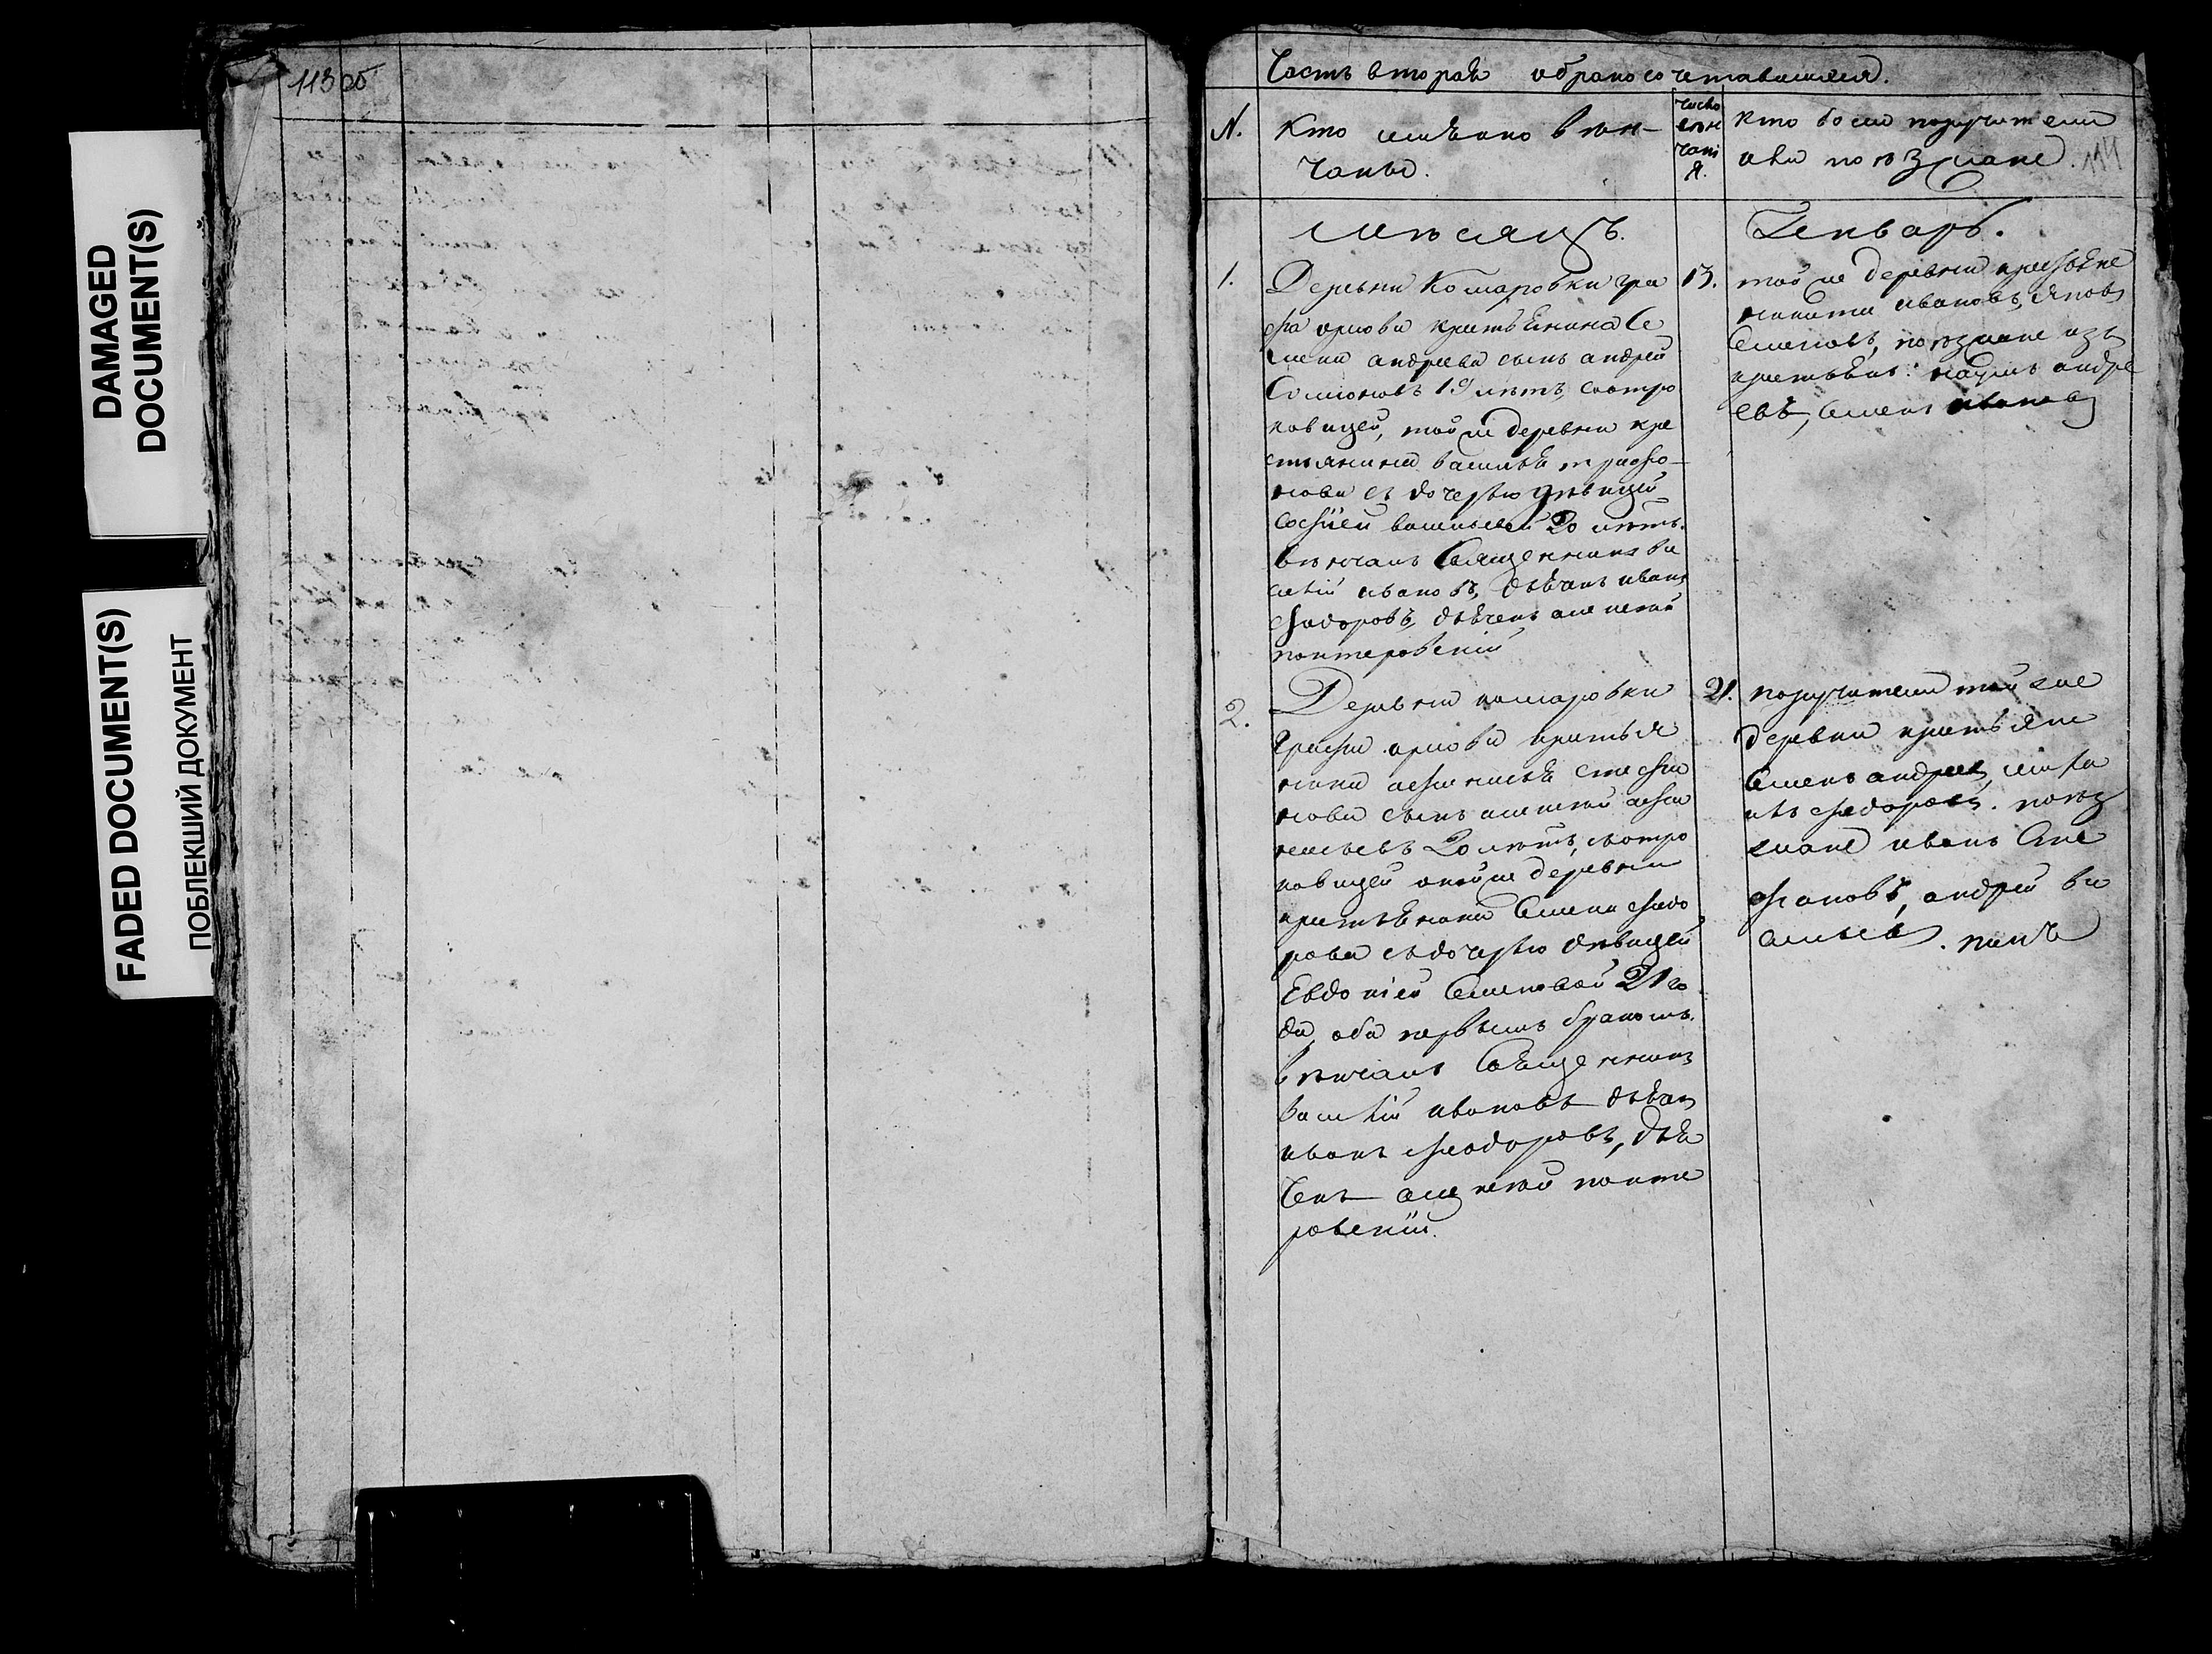 DAMAGED
DOCUMENT(S)
FADED DOCUMENT(S)
ПОБЛЕКШИЙ ДОКУМЕНТ
113 об
Часть вторая о бракосочетавшихся.
N.
Кто имяно вѣн-
чаны.
число
вѣн
чані
я.
Кто были поручители
или поѣзжане.
114
Мѣсяцъ.
Генварь.
1.
Деревни Комаровки гра
фа орлова крестьянина Се
мена андреева сынъ андрей
Семионовъ 19 лѣтъ, соотро
ковицей, той же деревни кре
стьянина василья трифо-
нова съ дочерью дѣвицей
Софіей васильевой 20 лѣтъ.
вѣнчалъ Священникъ ва
силій ивановъ, дьяконъ иванъ
Фиодоровъ, дьячекъ алексей
13.
той же деревни крестьяне
никита ивановъ, яковъ
Семеновъ, поѣзжане изъ
крестьянъ: наумъ андре
евъ, Семенъ ивановъ
2.
Деревни комаровки
Графа орлова крестья
нина афанасья стефа
нова сынъ алексей афа
насьевъ 20 лѣтъ, соотро
ковицей оной же деревни
крестьянина Семена Фиодо
рова съ дочерью дѣвицей
Евдокіей Семеновой 21 го
да, оба первымъ бракомъ.
вѣнчалъ Священникъ
василій ивановъ дьяконъ
иванъ Феодоровъ, дья
чекъ алексей
21.
поручители той же
деревни крестьяне
Семенъ андреевъ, миха
илъ Федоровъ. поѣз
жане иванъ Сте
фановъ, андрей ва
сильевъ.